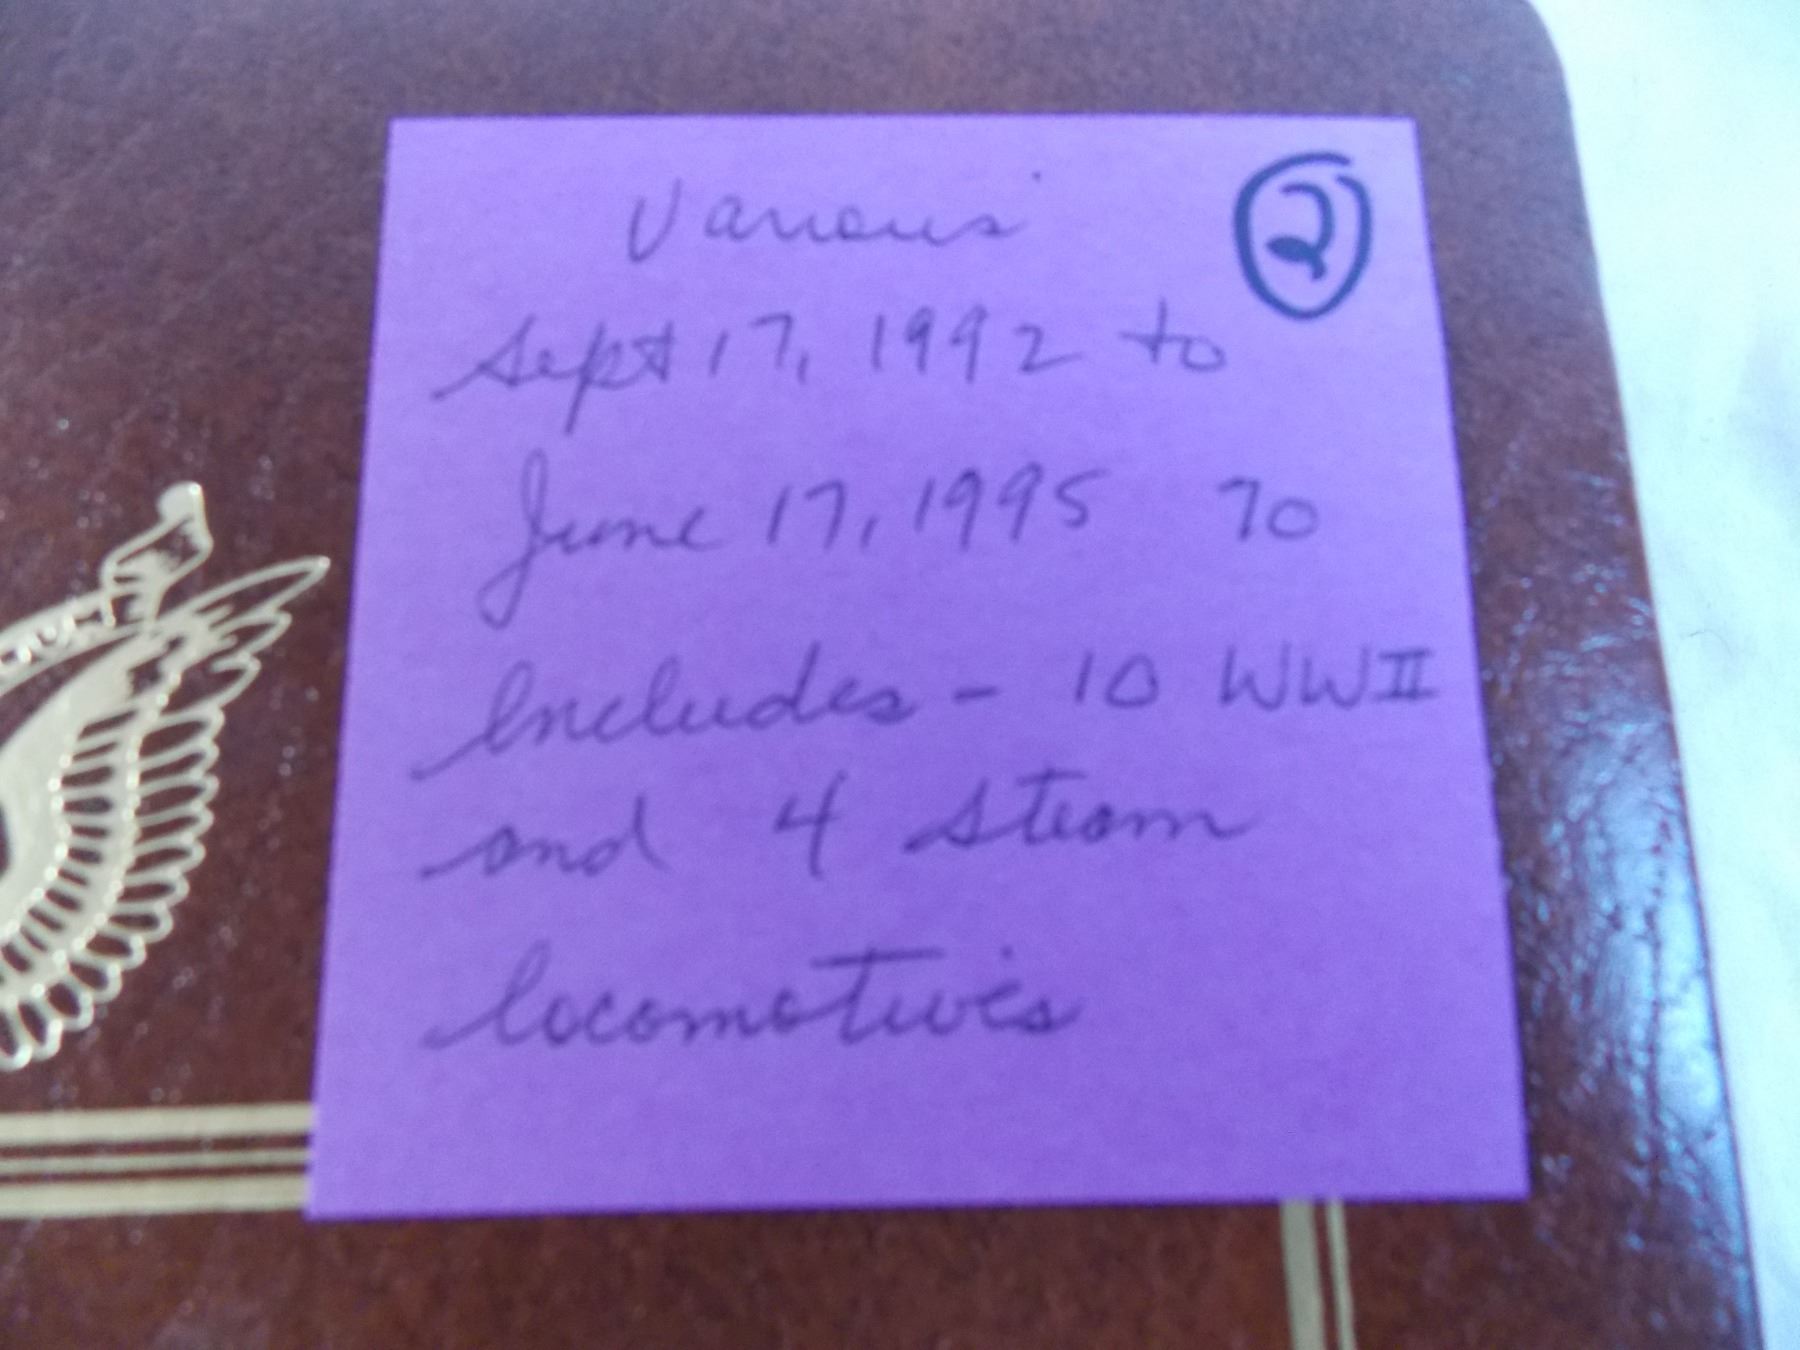 Various
2
Sept 17, 1992 to
June 17, 1995 70
Includes - 10 WWII
and 4 steam
locomotives